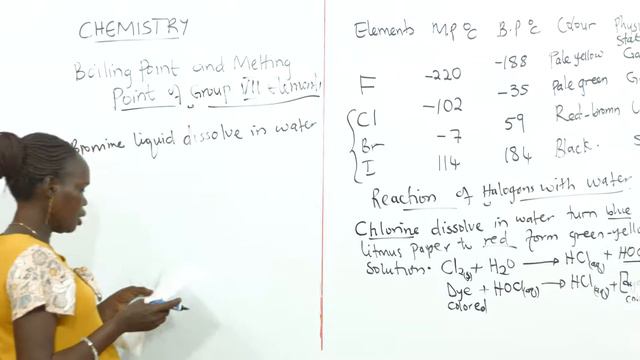 CHEMISTRY
Boiling Point and Melting
Point of Group VII elements
Bromine liquid dissolve in water
Elements M.P °C B.P °C Colour
F -220 -188 Pale yellow
Cl -102 -35 Pale green
Br -7 59 Red-brown
I 114 184 Black.
Reaction of Halogens with water
Chlorine dissolve in water turn blue
litmus paper to red form green-yello
Solution. Cl2(g) + H2O → HCl(aq) + HOC
Dye + HOCl(aq) → HCl(aq) +
colored